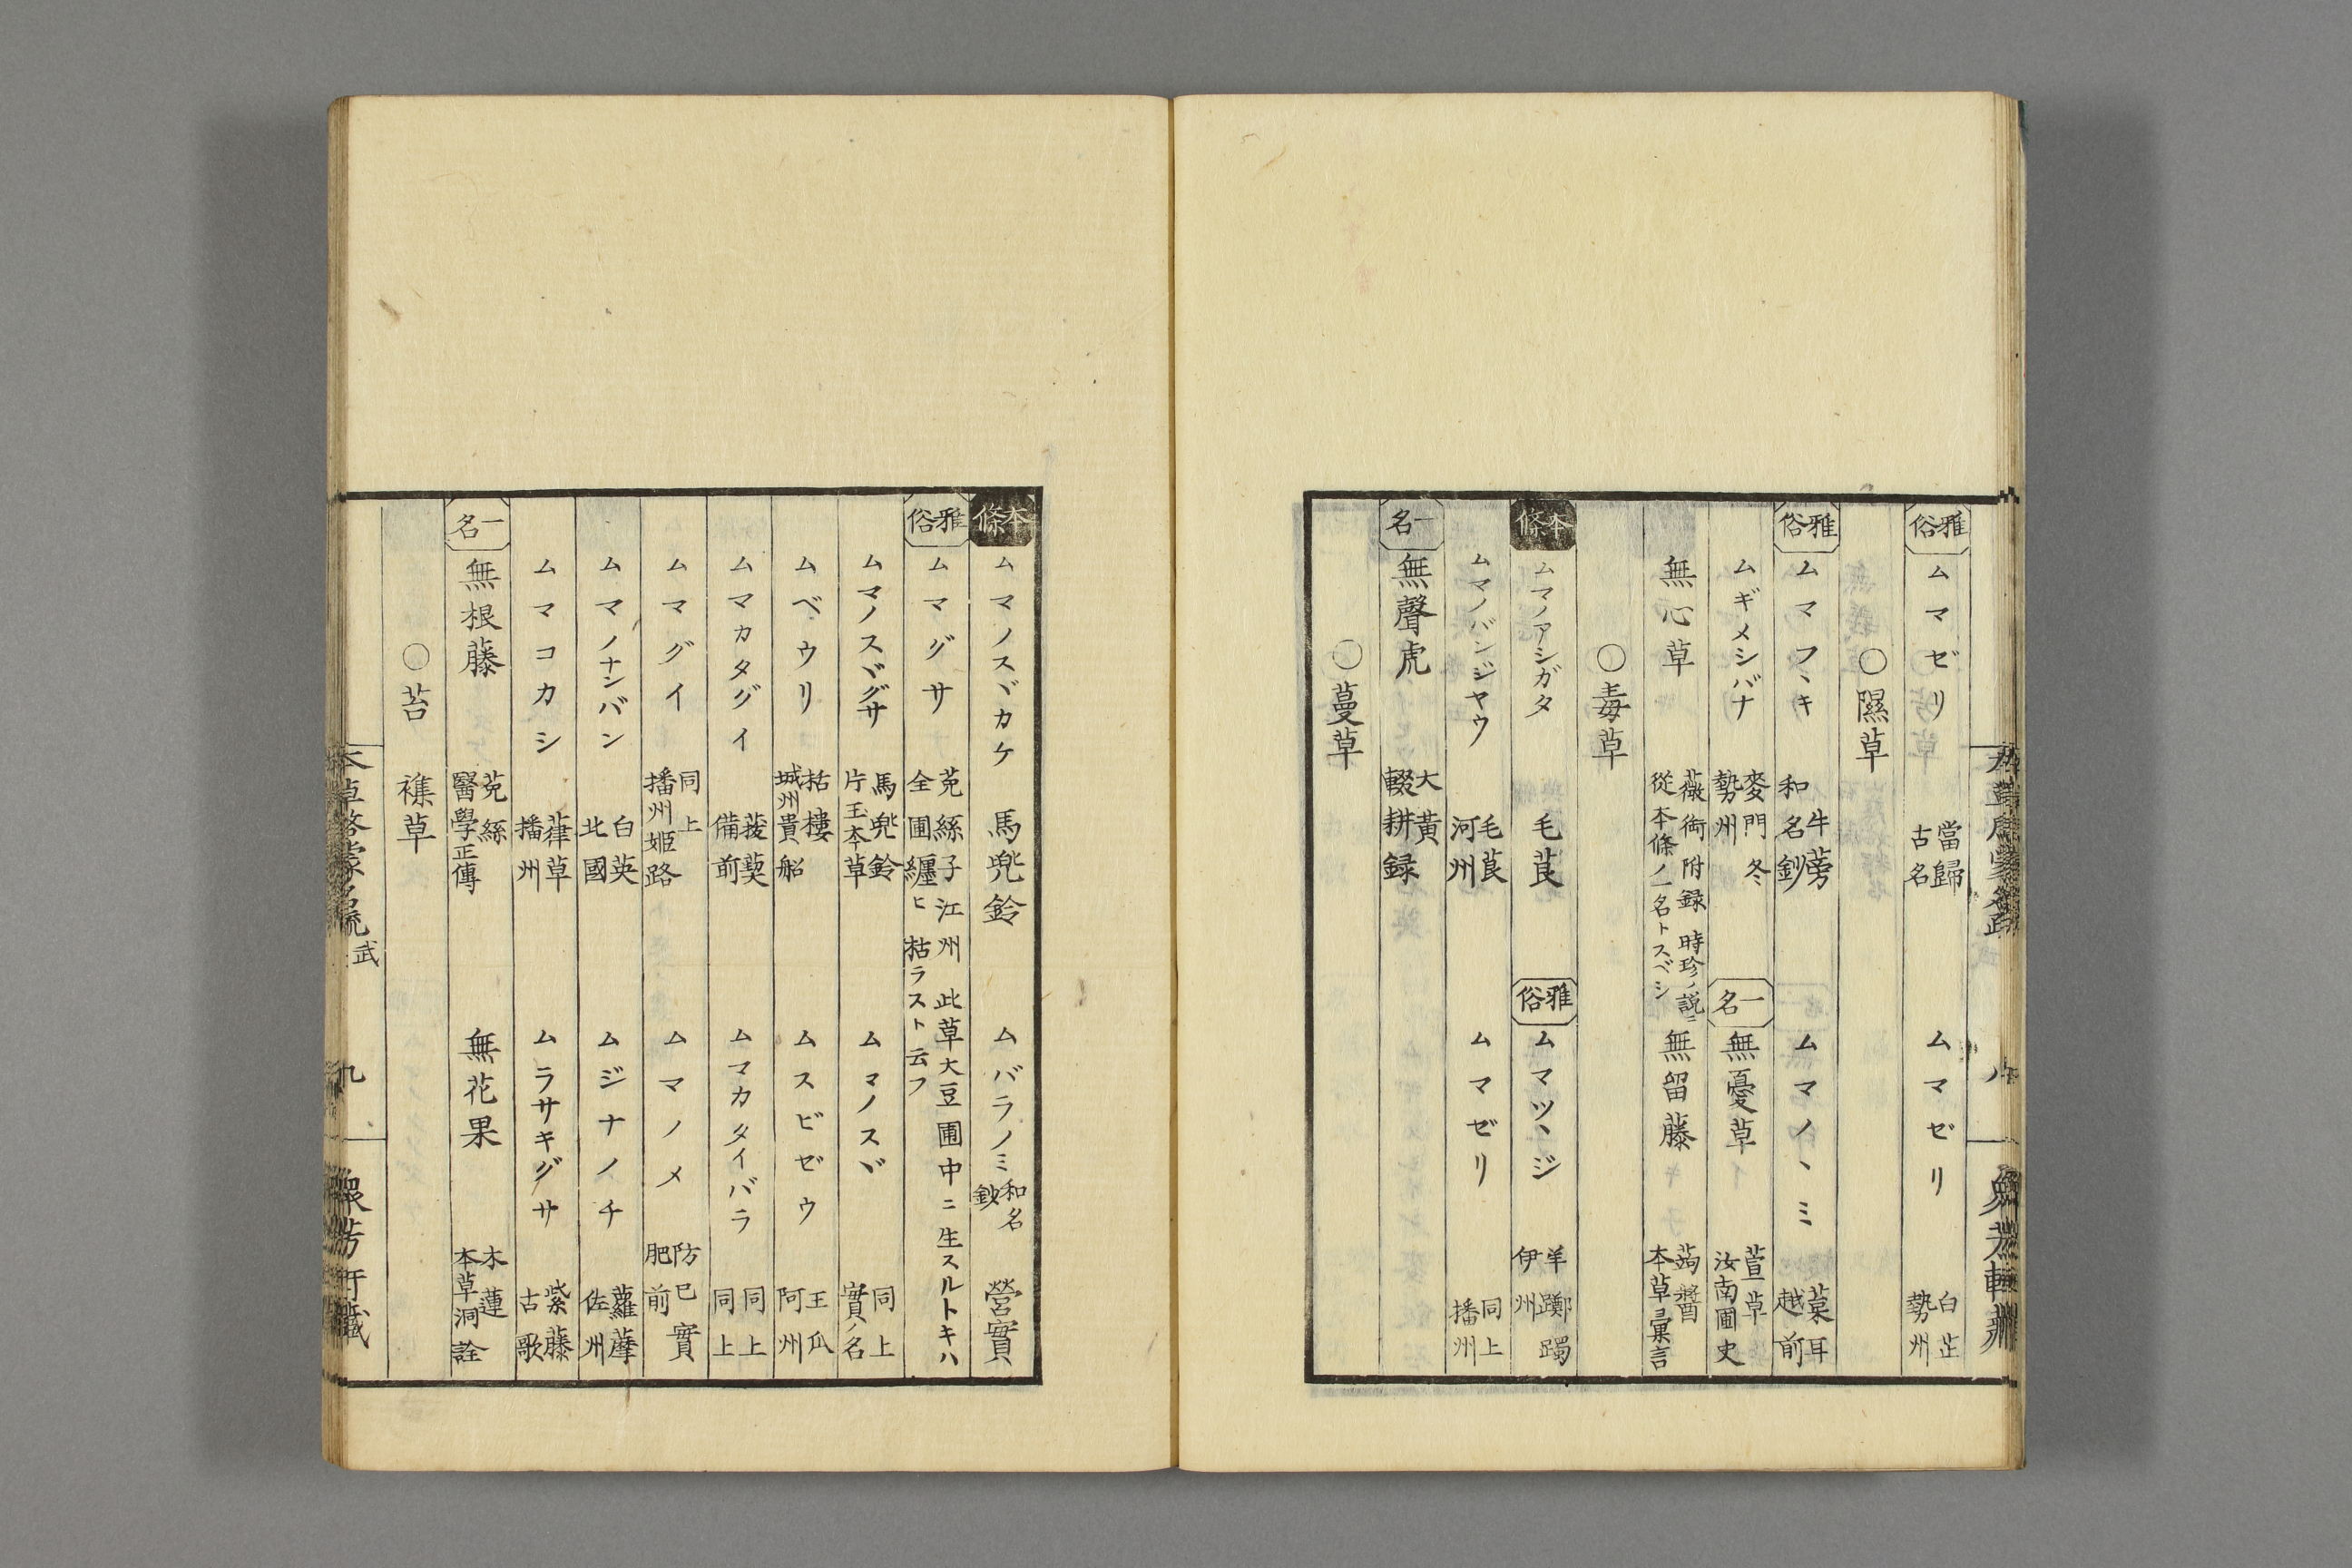 雅俗 ムマゼリ 當歸 古名 ムマゼリ 白芷 勢州
〇隰草
雅俗 ムマフヽキ 牛蒡 和名鈔 ムマノヽミ 葈耳 越前
ムギメシバナ 麥門冬 勢州 一名 無憂草 萱草 汝南圃史
無心草 薇銜附録 時珍ノ説ニ從本條ノ一名トスベシ 無留藤 蒟醬 本草彙言
〇毒草
本條 ムマノアシガタ 毛茛 雅俗 ムマツヽジ 羊躑躅 伊州
ムマノバンジヤウ 毛茛 河州 ムマゼリ 同上 播州
一名 無聲虎 大黃 輟耕録
〇蔓草
本條 ムマノスヾカケ 馬兜鈴 ムバラノミ 和名鈔 營實
雅俗 ムマグサ 菟絲子 江州 此草大豆圃中ニ生スルトキハ全圃纏ヒ枯ラスト云フ
ムマノスヾグサ 馬兜鈴 片玉本草 ムマノスヾ 同上 實ノ名
ムベウリ 栝樓 城州貴船 ムスビゼウ 王瓜 阿州
ムマカタグイ 菝葜 備前 ムマカタイバラ 同上 同上
ムマグイ 同上 播州姬路 ムマノメ 防已實 肥前
ムマノナンバン 白英 北國 ムジナノチ 蘿藦 佐州
ムマコカシ 葎草 播州 ムラサキグサ 紫藤 古歌
一名 無根藤 菟絲 醫學正傳 無花果 木蓮 本草洞詮
〇苔 襍草
本草啓蒙名疏 武 九 衆芳軒藏